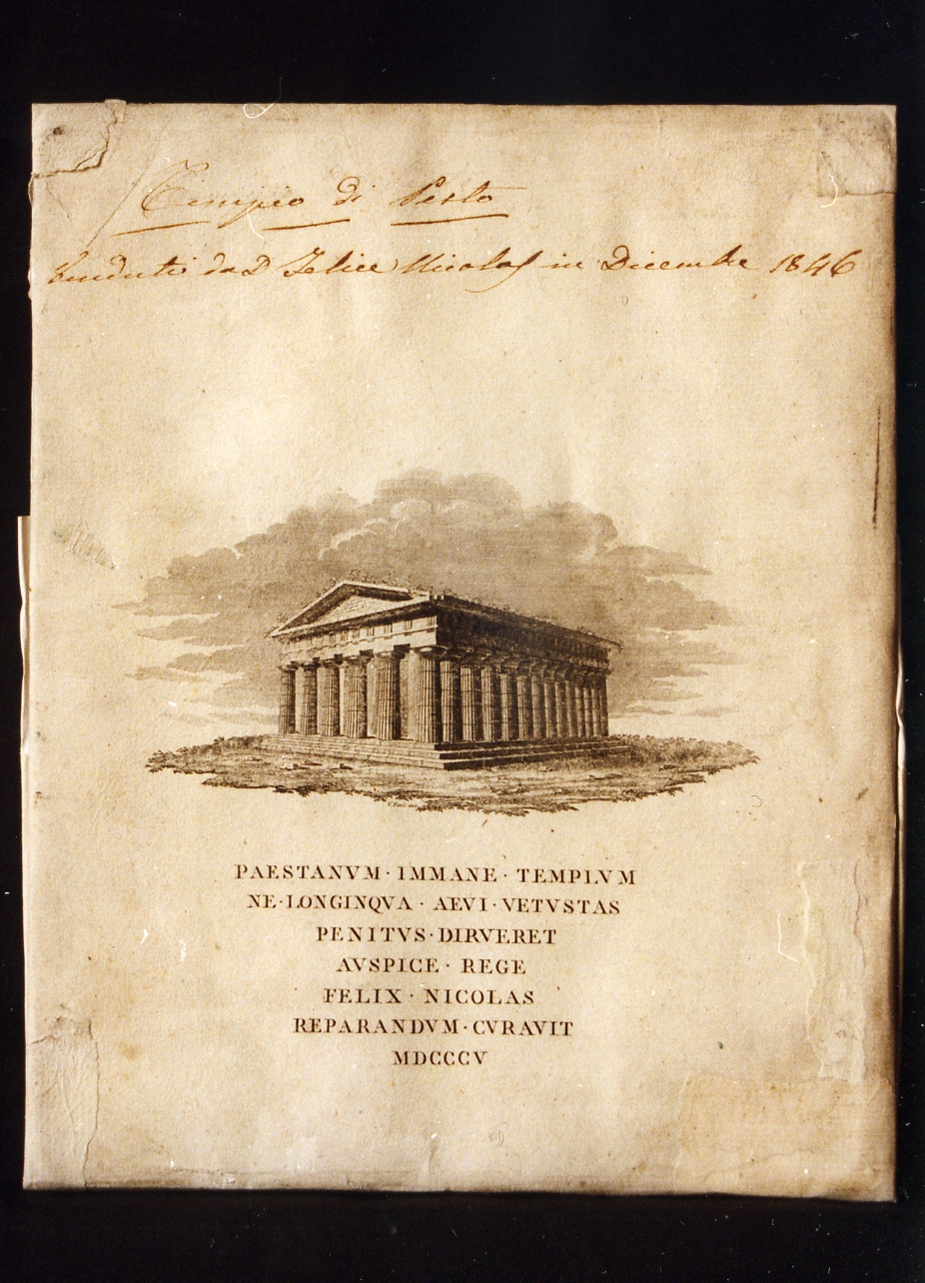 Tempio di Pesto
venduti da D Felice Nicolas in Dicembre 1846
PAESTANVM · IMMANE · TEMPLVM
NE · LONGINQVA · AEVI · VETVSTAS
PENITVS · DIRVERET
AVSPICE · REGE
FELIX · NICOLAS
REPARANDVM · CVRAVIT
MDCCCV